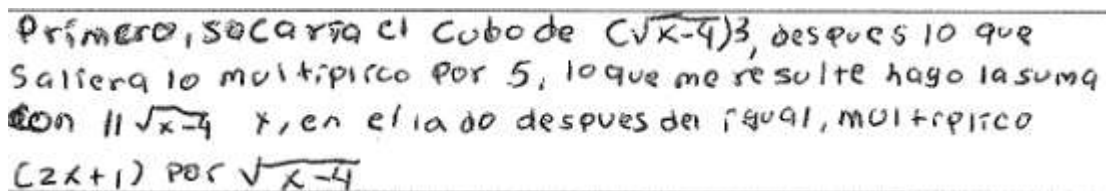 Primero, sacaría el cubo de (√x-4)3, despues lo que
saliera lo multiplico por 5, lo que me resulte hago la suma
con 11√x-4 y, en el lado despues del igual, multiplico
(2x+1) por √x-4